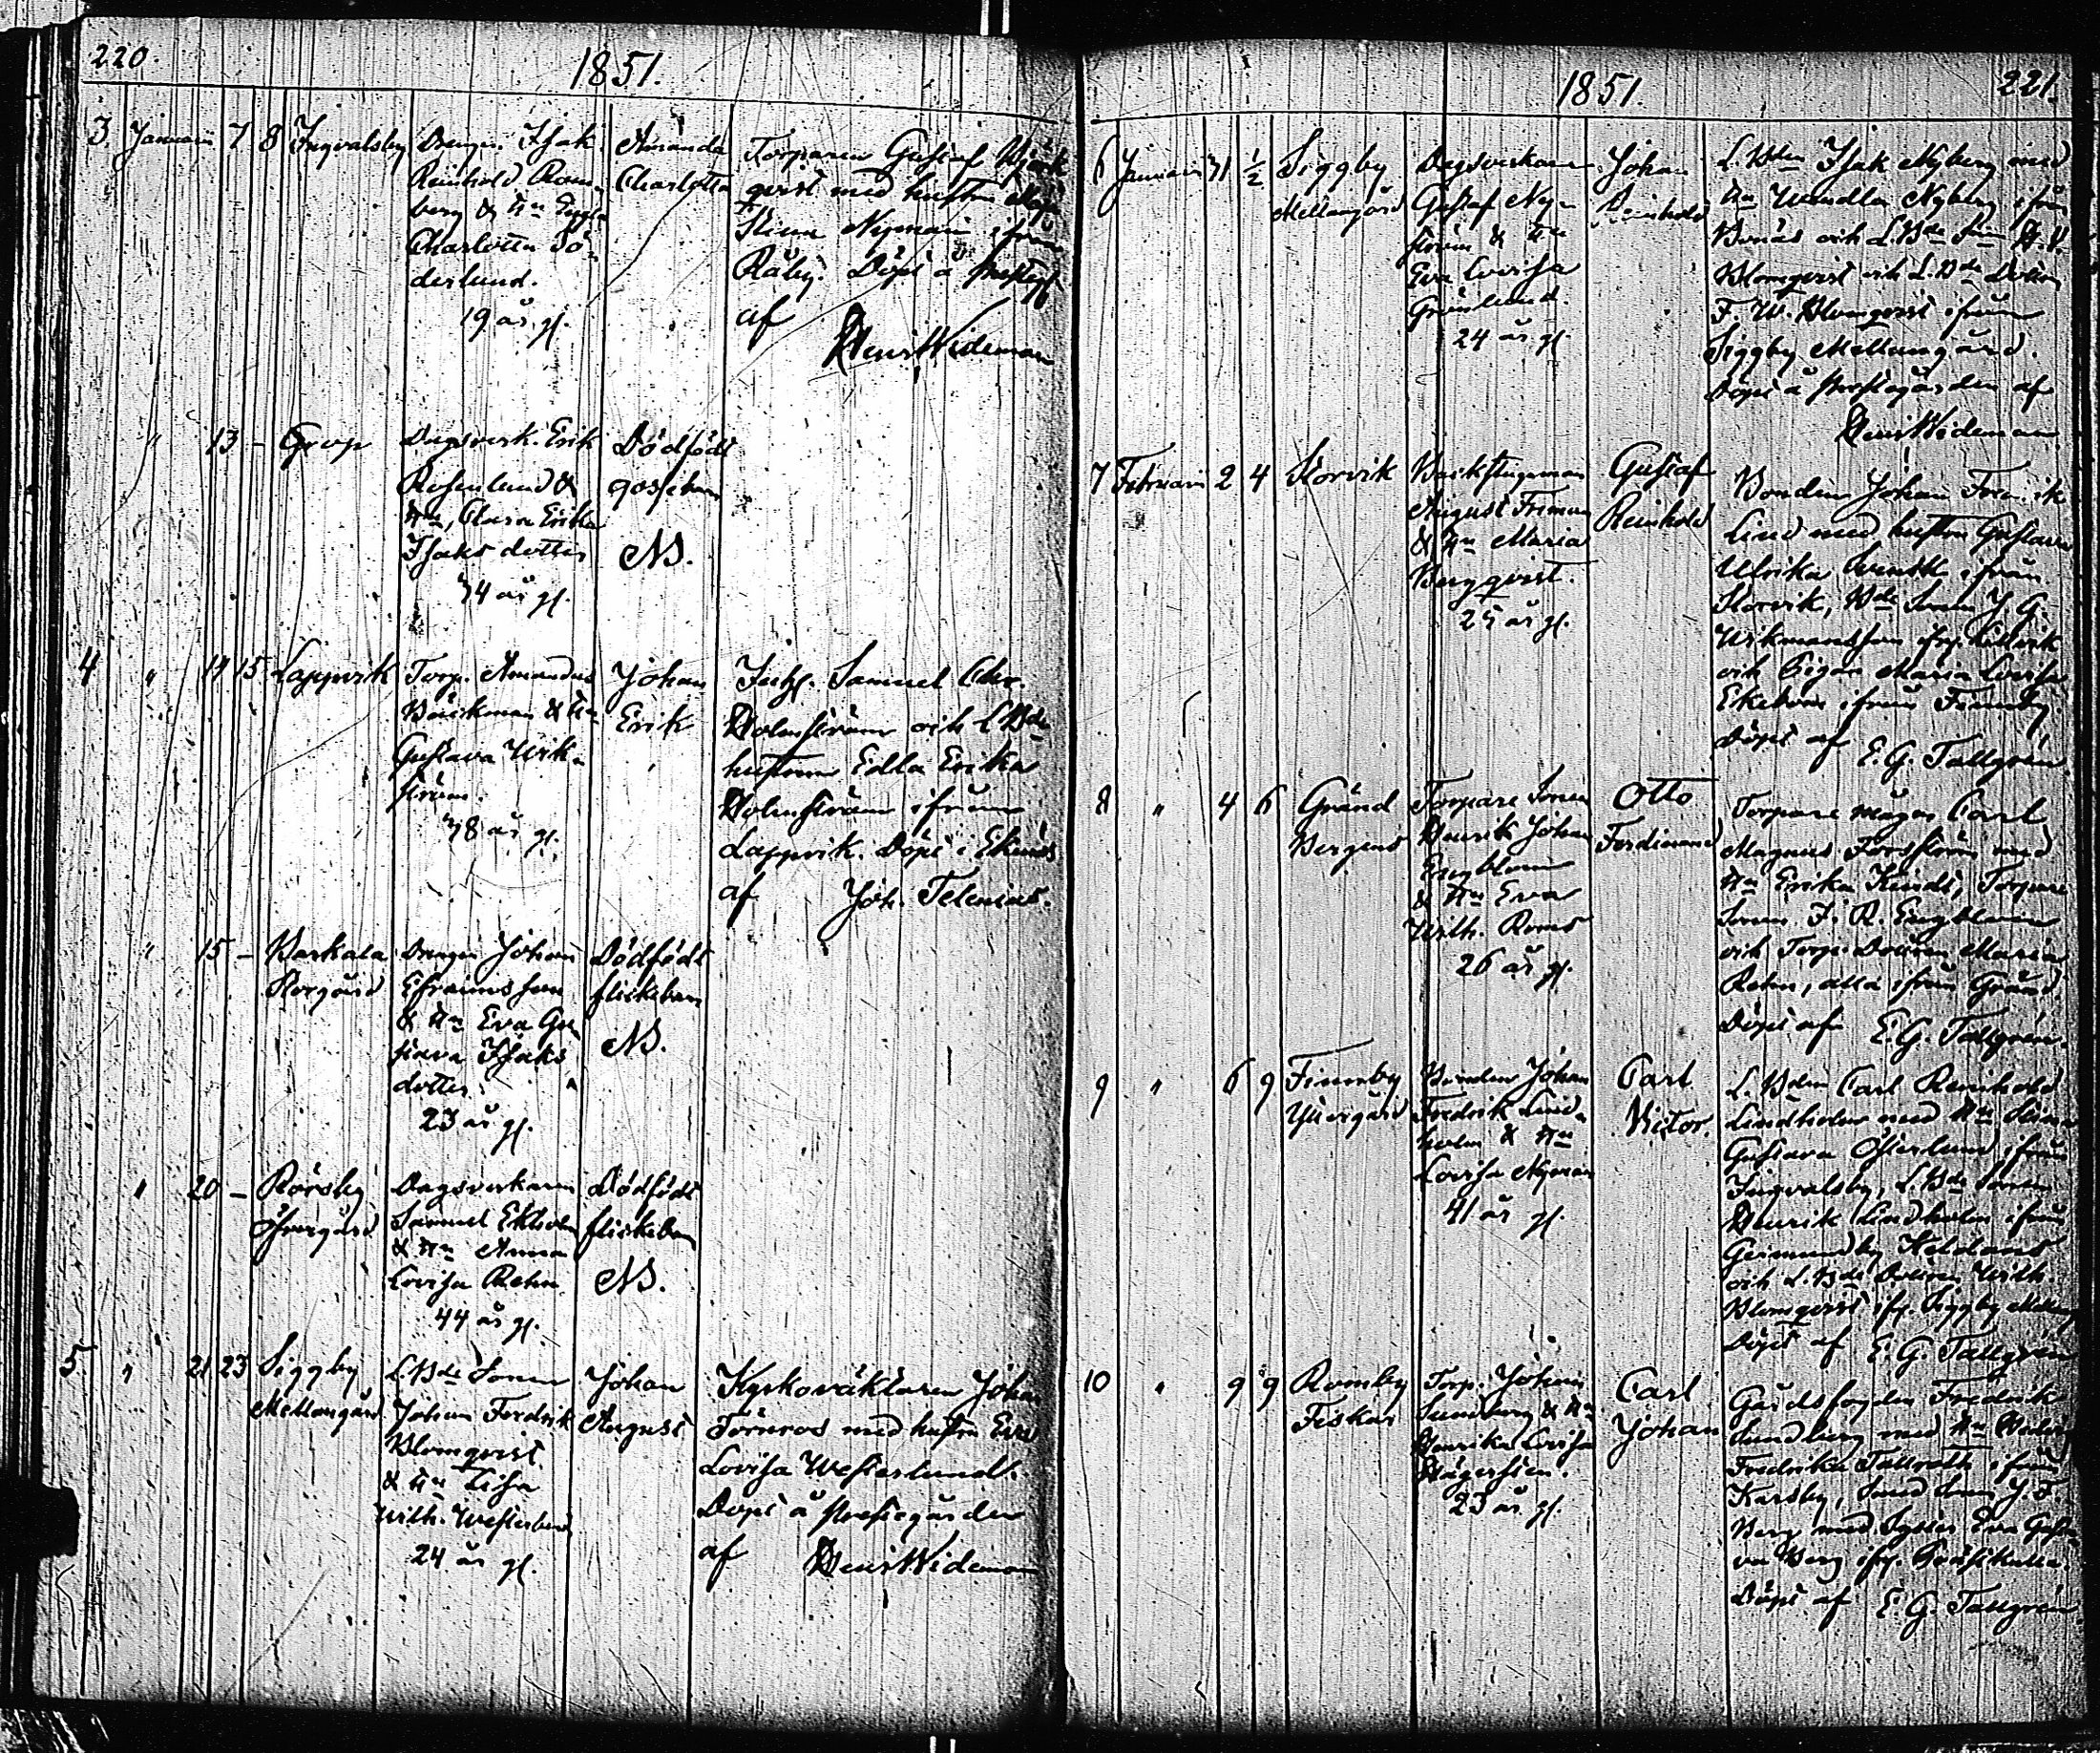 220.
1851.
3 Januarii 7 8 Ingvalsby
Drengen Isak
Reinhold Rom-
berg & H:n
Charlotta Sö-
derlund.
19 år gl.
Amanda
Charlotta
Torparen Gustaf Björk
qvist med hustru Maja
Stina Nyman ifrån
Råby. Döpt å prestg.
af
Henr Wideman
" 13 - Grop
Dagsverk. Erik
Rosenlund &
H:n, Clara Erika
Isaks dotter
34 år gl.
Dödfödt
gossebarn
NB.
4 " 14 15 Lappvik
Torp. Amandus
Bäckman & H:n
Gustava Wik-
ström.
38 år gl.
Johan
Erik
Inhs. Samuel Chr.
Holmström och L Bde
hustrun Edla Erika
Holmström ifrån
Lappvik. Döpt i Ekenäs
af Joh. Telenius.
" 15 - Baskala
Norrgård
Drengen Johan
Efraimsson
& H:n Eva Gu
stava Isaks
dotter.
23 år gl.
Dödfödt
flickebarn
NB.
" 20 - Rörsby
Öfvergård
Dagsverkaren
Samuel Ekholm
& H:n Anna
Lovisa Rehn
44 år gl.
Dödfödt
flickebarn
NB.
5 " 21 23 Siggby
Mellangård
L.Bde Sonen
Johan Fredrik
Blomqvist
& H:n Lisa
Wilh. Westerlund
24 år gl.
Johan
August
Kyrkoväktaren Johan
Törnros med hustru Eva
Lovisa Westerlund.
Döpt å prestegården
af Henr Wideman
1851.
221.
6 Januarii 31 1/2 Siggby
Mellangård
Dagsverkaren
Gustaf Ny-
ström & H:n
Eva Lovisa
Grönlund.
24 år gl.
Johan
Reinhold
L. Bden Isak Nyberg med
H:n Wendla Nyberg ifrån
Bonäs och L.Bde Son
Blomqvist och L.Bde Dottern
F. W. Blomqvist ifrån
Siggby Mellangård.
Döpt å prestegården af
Henr Wideman
7 Februarii 2 4 Skorvik
Backstugeman
August Friman
& H:n Maria
Bergqvist.
25 år gl.
Gustaf
Reinhold
Bonden Johan Fredrik
Lind med hustru Gustava
Ulrika ifrån
Skorvik, Bde Sonen J. G.
Wikmansson ifrp.
och Pigan Maria Lovisa
Ekebom ifrån Finnby.
Döpt af E. G. Tallgren
8 " 4 6 Gränd
Bergens
Torpare Sonen
Henrik Johan
Engblom
& H:n Eva
Wilh. Roms
26 år gl.
Otto
Ferdinand
Torpare mågen Carl
Magnus Forsström med
H:n Erika Kindt, Torpare
Sonen F. R. Engblom
och Torp. Dottren Maria
Rehn, alla ifrån Gränd.
Döpt af E. G. Tallgren.
9 " 6 9 Finnby
Yttergård
Bonden Johan
Fredrik Lind-
holm & H:n
Lovisa Nyman
41 år gl.
Carl
Victor.
L. Bden Carl Reinhold
Lindholm med H:n Stina
Gustava Österlund ifrån
Ingvalsby, L.Bde Sonen
Henrik Lindholm ifrån
Germundby Heldans
och L.Bde Dottren Wilh.
Blomqvist ifr. Siggby Mellang.
Döpt af E. G. Tallgren
10 " 9 9 Romby
Fiskar
Torp. Johan
Sundberg & H:n
Henrika Lovisa
Hägerstén.
23 år gl.
Carl
Johan
Gårdsfogden Fredrik
Sundberg med H:n
Fredrika Tallroth ifrån
Karsby, Smed Son J. F.
Berg med Syster Eva Gusta
va Berg ifr. Gräsikulla.
Döpt af E. G. Tallgren